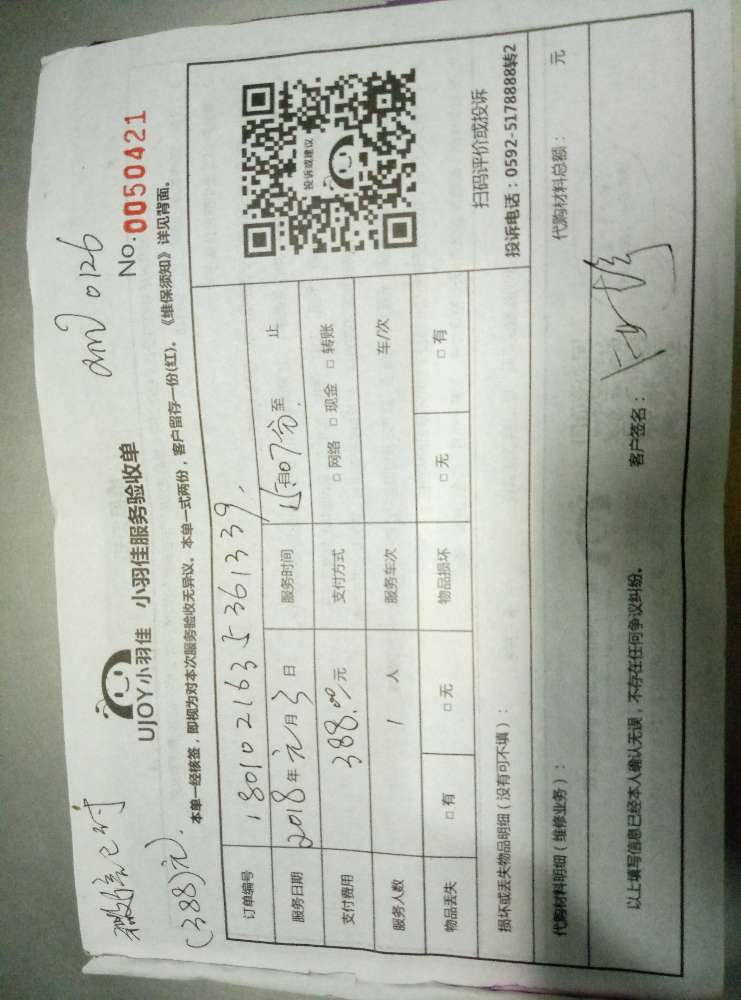 微信已付
(388)元.
am 0126
UJOY小羽佳 小羽佳服务验收单
No. 0050421
本单一经核签，即视为对本次服务验收无异议。本单一式两份，客户留存一份(红)。《维保须知》详见背面。
订单编号 1801021635361339
服务日期 2018年元月3日 服务时间 15时07分至 止
支付费用 388.00元 支付方式 □网络 □现金 □转账
服务人数 1 人 服务车次 车/次
物品丢失 □有 □无 物品损坏 □无 □有
投诉或建议
扫码评价或投诉
投诉电话：0592-5178888转2
损坏或丢失物品明细（没有可不填）：
代购材料明细（维修业务）： 代购材料总额： 元
以上填写信息已经本人确认无误，不存在任何争议纠纷。 客户签名：